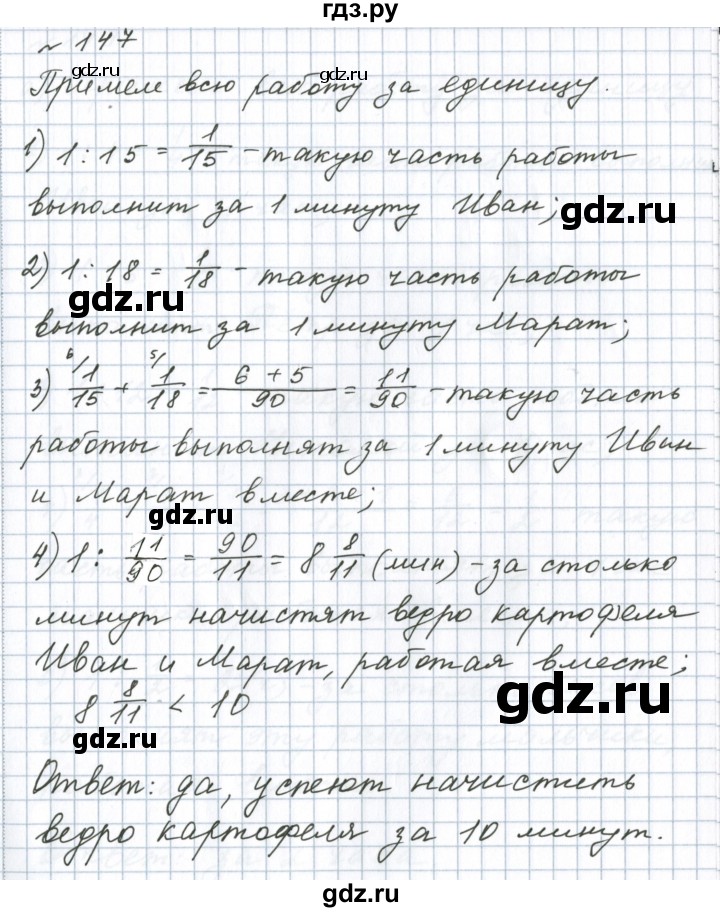 гдз.ру
№ 147
gdz.ru gdz.ru
Примем всю работу за единицу.
1) 1 : 15 = 1/15 - такую часть работы
выполнит за 1 минуту Иван;
gdz.ru
2) 1 : 18 = 1/18 - такую часть работы
gdz.ru
выполнит за 1 минуту Марат;
3) 6/ 1/15 + 5/ 1/18 = (6 + 5)/90 = 11/90 - такую часть
работы выполнят за 1 минуту Иван
и Марат вместе;
gdz.ru
4) 1 : 11/90 = 90/11 = 8 8/11 (мин) - за столько
минут начистят ведро картофеля
Иван и Марат, работая вместе;
8 8/11 < 10
gdz.ru gdz.ru
Ответ: да, успеют начистить
ведро картофеля за 10 минут.
gdz.ru